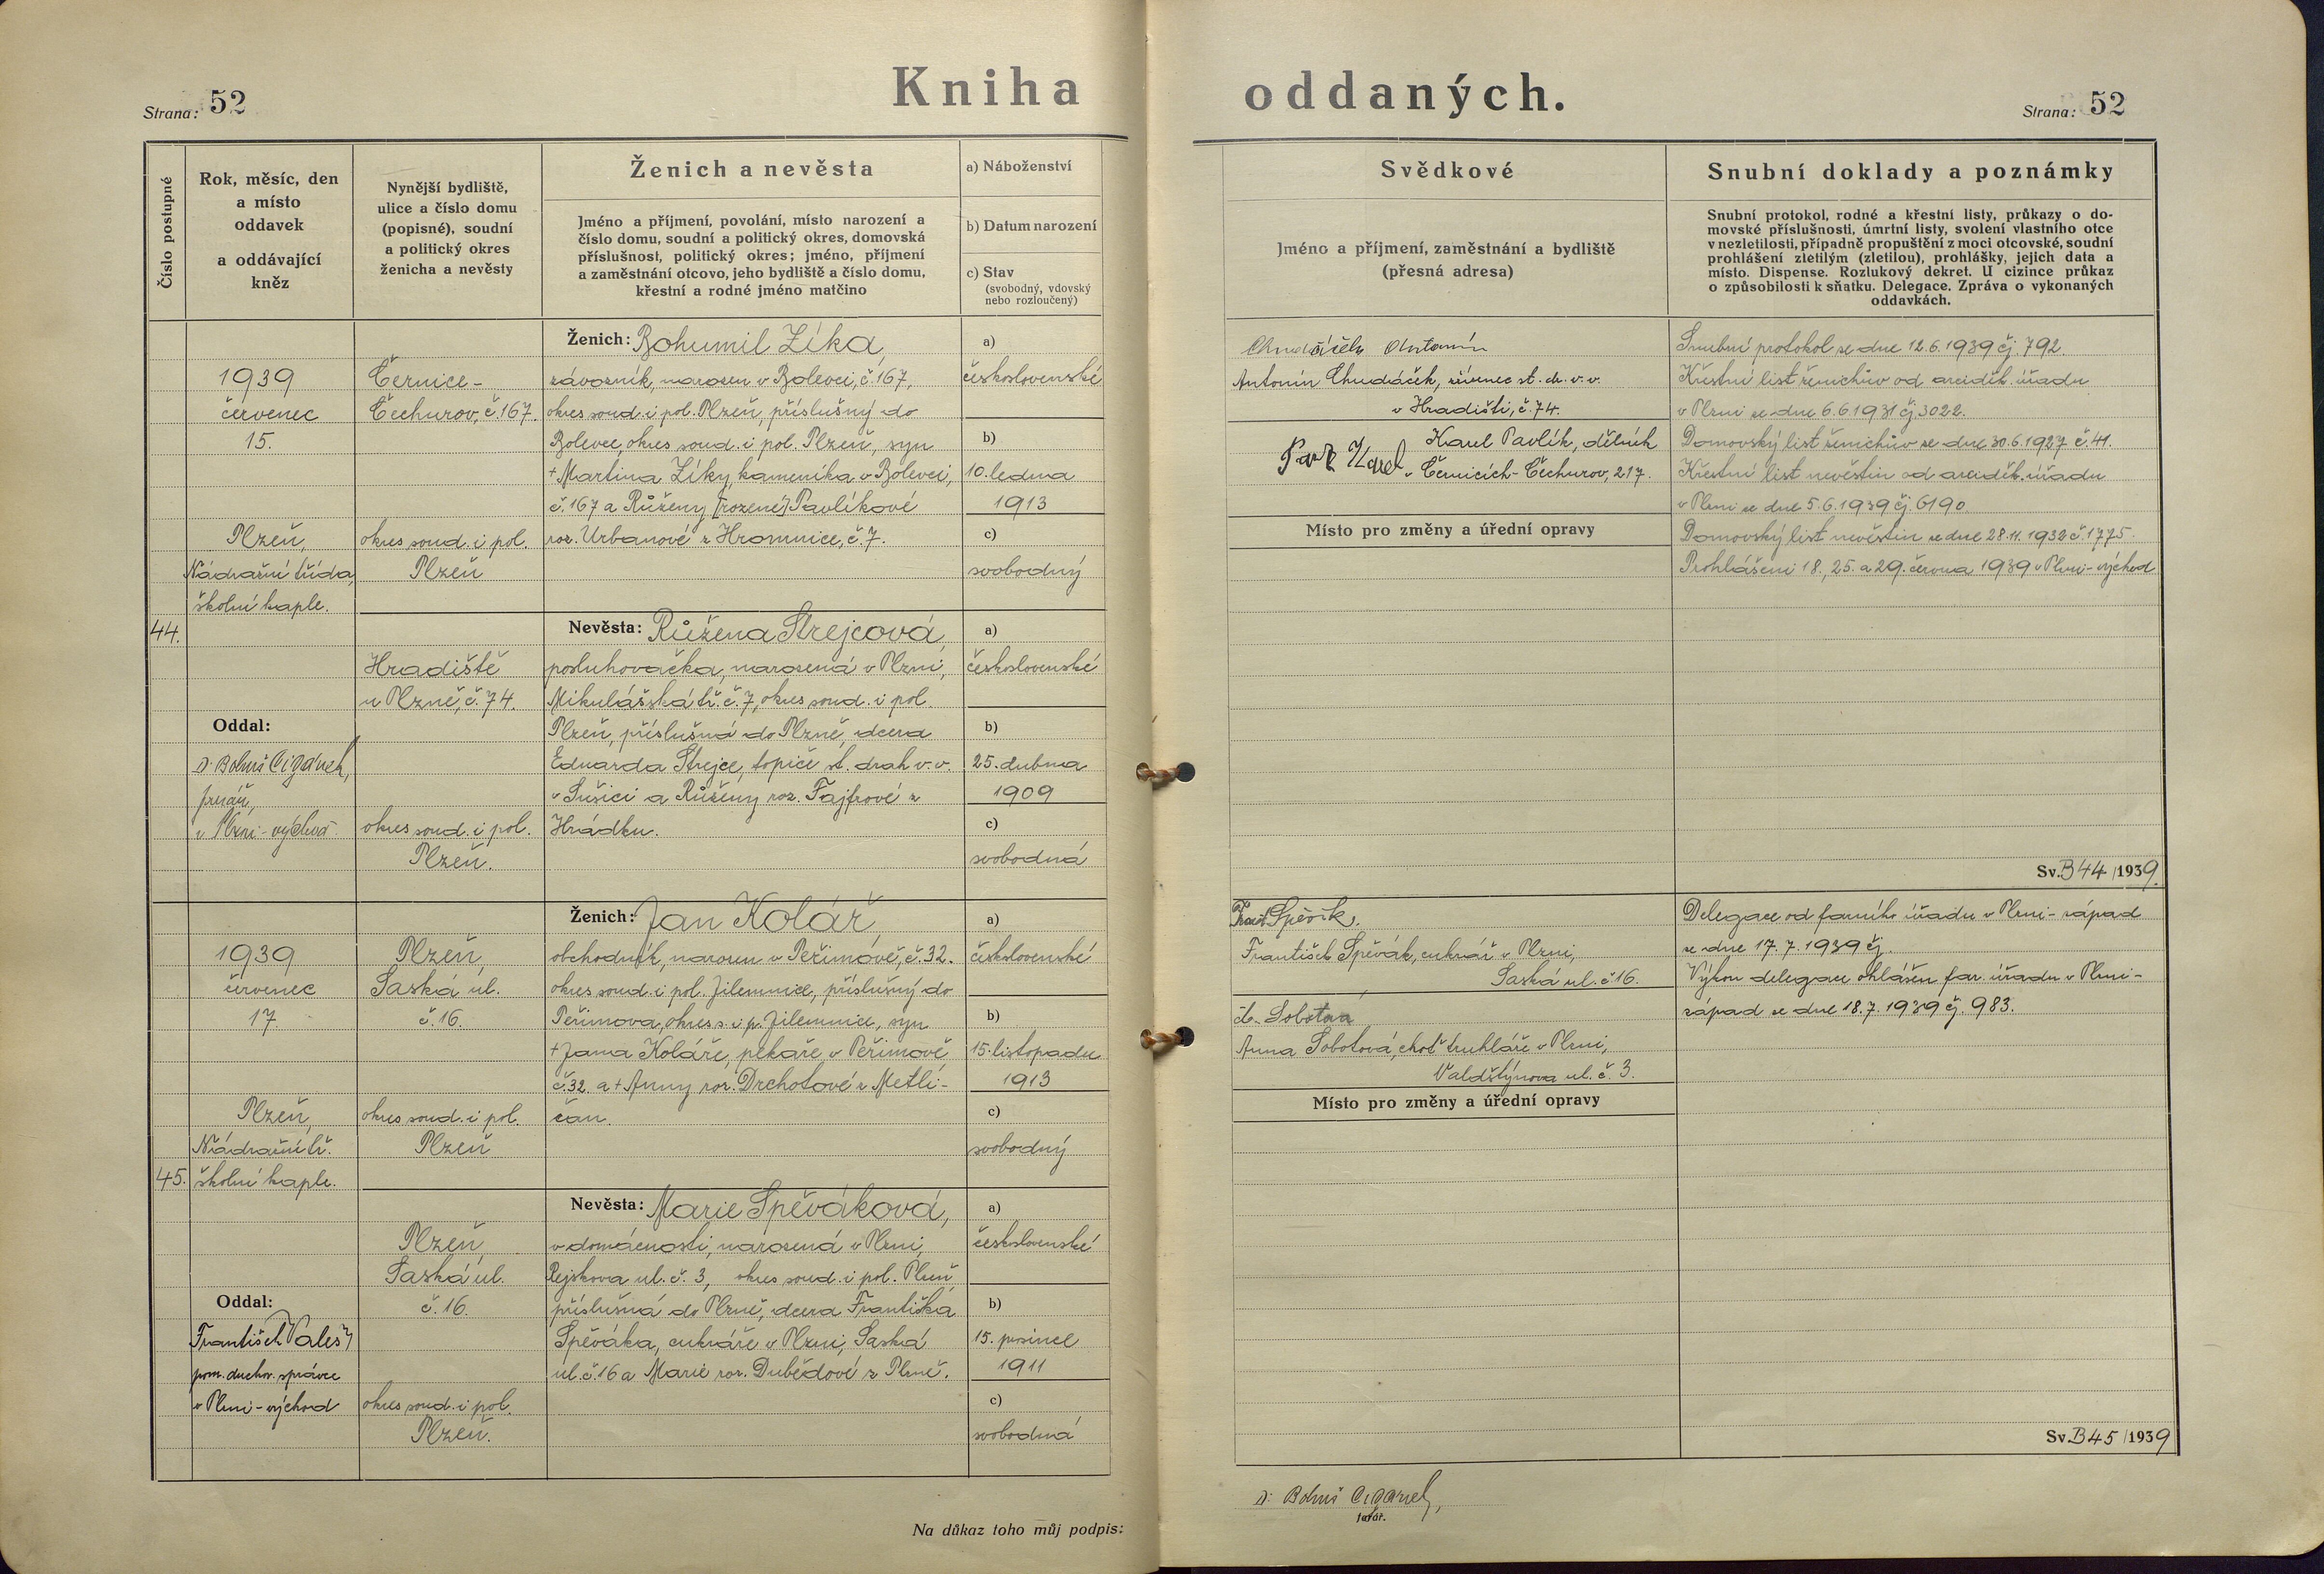 Kniha oddaných.
Strana: 52
Strana: 52
Číslo postupné
Rok, měsíc, den
a místo
oddavek
a oddávající
kněz
Nynější bydliště,
ulice a číslo domu
(popisné), soudní
a politický okres
ženicha a nevěsty
Ženich a nevěsta
Jméno a příjmení, povolání, místo narození a
číslo domu, soudní a politický okres, domovská
příslušnost, politický okres; jméno, příjmení
a zaměstnání otcovo, jeho bydliště a číslo domu,
křestní a rodné jméno matčino
a) Náboženství
b) Datum narození
c) Stav
(svobodný, vdovský
nebo rozloučený)
Svědkové
Jméno a příjmení, zaměstnání a bydliště
(přesná adresa)
Snubní doklady a poznámky
Snubní protokol, rodné a křestní listy, průkazy o do-
movské příslušnosti, úmrtní listy, svolení vlastního otce
v nezletilosti, případně propuštění z moci otcovské, soudní
prohlášení zletilým (zletilou), prohlášky, jejich data a
místo. Dispense. Rozlukový dekret. U cizince průkaz
o způsobilosti k sňatku. Delegace. Zpráva o vykonaných
oddavkách.
44.
1939
červenec
15.
Plzeň,
Nádražní třída,
školní kaple.
Oddal:
Dr. Bohuš Cigánek,
farář,
v Plzni-východ
Černice-
Čechurov, č. 167.
okres soud. i pol.
Plzeň
Hradiště
u Plzně, č. 74.
okres soud. i pol.
Plzeň.
Ženich: Bohumil Zíka,
závozník, narozen v Bolevci, č. 167,
okres soud. i pol. Plzeň, příslušný do
Bolevce, okres soud. i pol. Plzeň, syn
+Martina Zíky, kameníka v Bolevci,
č. 167 a Růženy [rozené] Pavlíkové
roz. Urbanové z Hromnice, č. 7.
Nevěsta: Růžena Strejcová,
posluhovačka, narozená v Plzni,
Mikulášská tř. č. 7, okres soud. i pol.
Plzeň, příslušná do Plzně, dcera
Eduarda Strejce, topiče st. drah v. v.
v Sušici a Růženy roz. Fajfrové z
Hrádku.
a)
československé
b)
10. ledna
1913
c)
svobodný
a)
československé
b)
25. dubna
1909
c)
svobodná
Chudáček Antonín
Antonín Chudáček, zřízenec st. dr. v. v.
v Hradišti, č. 74.
Karel
Karel Pavlík, dělník
v Černicích-Čechurov, 217.
Místo pro změny a úřední opravy
Snubní protokol ze dne 12.6.1939 čj. 792.
Křestní list ženichův od arciděk. úřadu
v Plzni ze dne 6.6.1931 čj. 3022.
Domovský list ženichův ze dne 30.6.1927 č. 41.
Křestní list nevěstin od arciděk. úřadu
v Plzni ze dne 5.6.1939 čj. 6190
Domovský list nevěstin ze dne 28.11.1932 č. 1775.
Prohlášeni 18., 25. a 29. června 1939 v Plzni-východ
Sv. B 44/1939.
45.
1939
červenec
17.
Plzeň,
Nádražní tř.
školní kaple.
Oddal:
František Valeš,
pom. duchov. správce
v Plzni-východ
Plzeň,
Saská ul.
č. 16.
okres soud. i pol.
Plzeň
Plzeň,
Saská ul.
č. 16.
okres soud. i pol.
Plzeň.
Ženich: Jan Kolář,
obchodník, narozen v Peřimově, č. 32.
okres soud. i pol. Jilemnice, příslušný do
Peřimova, okres s. i p. Jilemnice, syn
+Jana Koláře, pekaře v Peřimově
č. 32. a +Anny roz. Drchotové z Metli-
čan.
Nevěsta: Marie Spěváková,
v domácnosti, narozená v Plzni,
Rejskova ul. č. 3, okres soud. i pol. Plzeň
příslušná do Plzně, dcera Františka
Spěváka, cukráře v Plzni, Saská
ul. č. 16 a Marie roz. Dubědové z Plzně.
a)
československé
b)
15. listopadu
1913
c)
svobodný
a)
československé
b)
15. prosince
1911
c)
svobodná
Spěvák.
František Spěvák, cukrář v Plzni,
Saská ul. č. 16.
A. Sobotová
Anna Sobotová, choť truhláře v Plzni,
Valdštýnova ul. č. 3.
Místo pro změny a úřední opravy
Delegace od farního úřadu v Plzni-západ
ze dne 17.7.1939 čj.
Výkon delegace ohlášen far. úřadu v Plzni-
západ ze dne 18.7.1939 čj. 983.
Sv. B 45/1939
Na důkaz toho můj podpis:
Dr. Bohuš Cigánek,
farář.